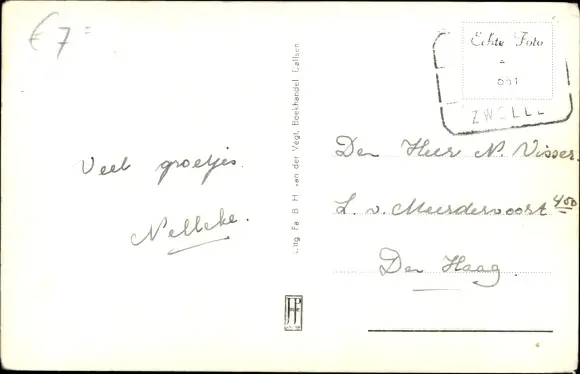 € 7=
Veel groetjes.
Nelleke.
Uitg. Fa. B. H. van der Vegt, Boekhandel Dalfsen
Echte Foto
ZWOLLE
Den Heer N. Visser.
L. v. Meerdervoort 400
Den Haag.